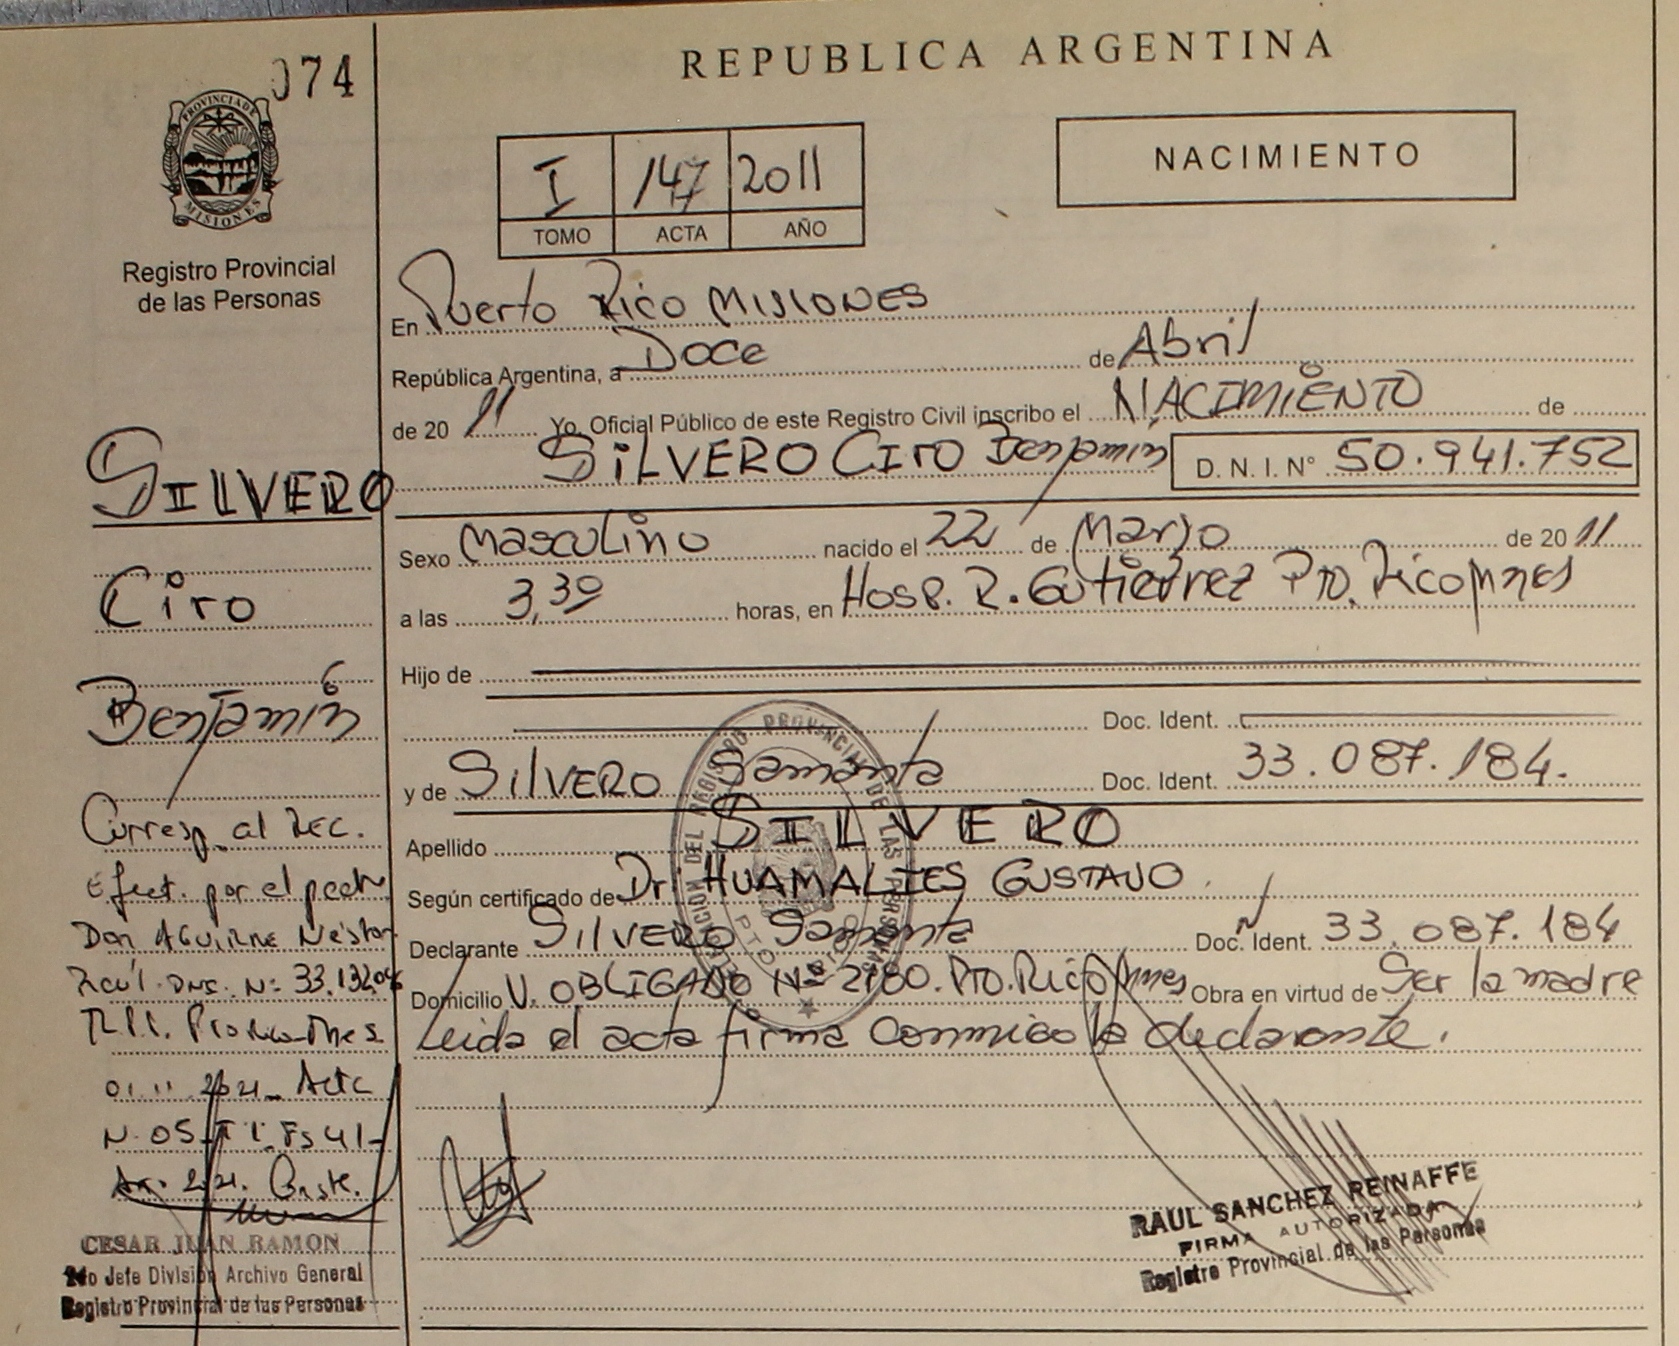 074
PROVINCIA DE
MISIONES
Registro Provincial
de las Personas
SILVERO
Ciro
Benjamín
Corresp. al Rec.
Efect. por el padre
Don AGUIRRE Néstor
Raúl. DNI. Nº 33.132.0
01.11.2021 Acta
N. 05 T I. Fs 41-
2021. Conste.
CESAR JUAN RAMON
2do Jefe División Archivo General
Registro Provincial de las Personas
REPUBLICA ARGENTINA
I 147 2011
TOMO ACTA AÑO
NACIMIENTO
En Puerto Rico MISIONES
República Argentina, a Doce de Abril
de 20 11 Yo, Oficial Público de este Registro Civil inscribo el NACIMIENTO de
SILVERO CIRO Benjamín D. N. I. N° 50.941.752
Sexo Masculino nacido el 22 de Marzo de 20 11
a las 3,30 horas, en Hosp. R. Gutiérrez Pto. Rico Mnes
Hijo de
Doc. Ident.
y de SILVERO Samanta Doc. Ident. 33.087.184.
Apellido SILVERO
Según certificado de Dr. HUAMALIES GUSTAVO.
Declarante SILVERO Samanta Doc. Ident. 33.087.184
Domicilio V. OBLIGADO Nº 2180. Pto. Rico Mnes Obra en virtud de Ser la madre
Leida el acta firma conmigo la declarante.
RAUL SANCHEZ REINAFFE
FIRMA AUTORIZADA
Registro Provincial de las Personas